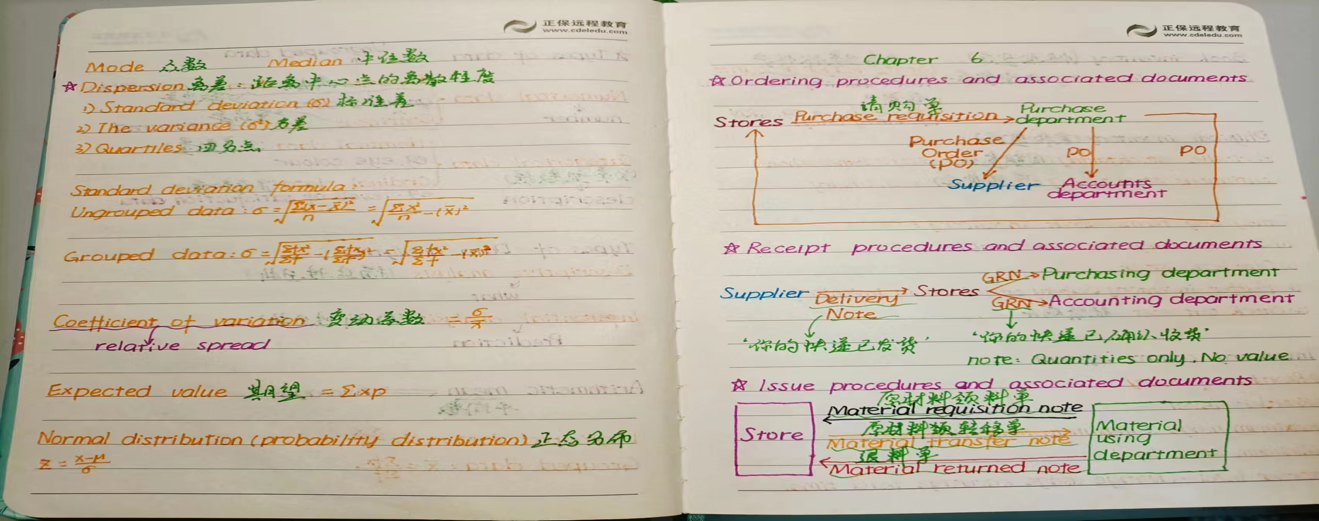 正保远程教育
www.cdeledu.com
Mode 众数 Median 中位数
☆ Dispersion 离差:距离中心点的离散程度
1) Standard deviation (σ) 标准差
2) The variance (σ²) 方差
3) Quartiles 四分点
Standard deviation formula:
Ungrouped data: σ = √(Σ(x-x̄)²/n) = √(Σx²/n - (x̄)²)
Grouped data: σ = √(Σfx²/Σf - (Σfx/Σf)²) = √(Σfx²/Σf - (x̄)²)
Coefficient of variation 变动系数 = σ/x̄
relative spread
Expected value 期望 = Σxp
Normal distribution (probability distribution) 正态分布
z = (x-μ)/σ
正保远程教育
www.cdeledu.com
Chapter 6
☆ Ordering procedures and associated documents
请购单
Stores Purchase requisition Purchase department
Purchase Order (PO) PO PO
Supplier Accounts department
☆ Receipt procedures and associated documents
GRN Purchasing department
Supplier Delivery Note Stores
GRN Accounting department
'你的快递已发货' '你的快递已确认收货'
note: Quantities only. No value
☆ Issue procedures and associated documents
原材料领料单
Material requisition note
Store
原材料领转移单
Material transfer note
Material using department
退料单
Material returned note